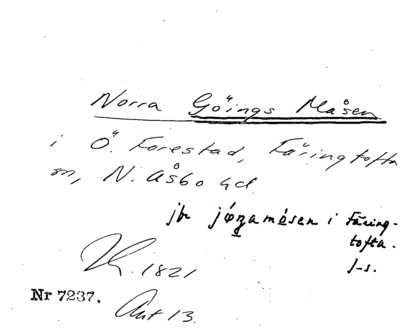 Norra Göings Måsen
i Ö. Forestad, Färingtofta
sn, N. Åsbo hd
jbr i Färing-
tofta.
f-s.
1821
Nr 7237.
Ant 13.